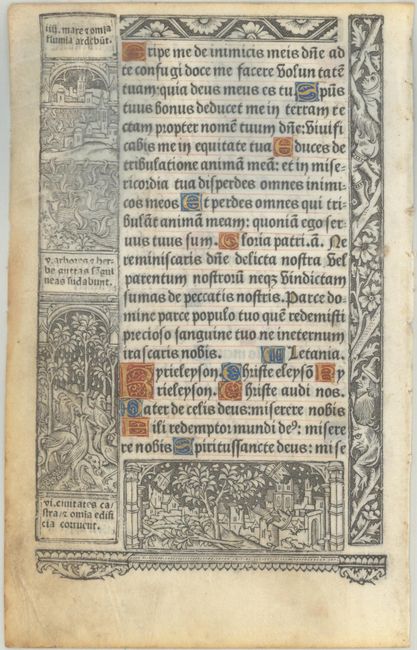 iiij. mare ⁊ omĩa
flumia ardebũt.
v. arbores ⁊ her-
be guttas sãgui
neas sudabunt.
vi. civitates ca/
stra/⁊ omĩa edifi
cia corruent.
Eripe me de inimicis meis dñe ad
te confugi doce me facere voluntatẽ
tuam: quia deus meus es tu. Spũs
tuus bonus deducet me in terram re
ctam propter nomẽ tuum dñe: vivifi
cabis me in equitate tua Educes de
tribulatione animã meã: et in mise-
ricordia tua disperdes omnes inimi-
cos meos Et perdes omnes qui tri-
bulãt animam meam: quoniã ego ser-
uus tuus sum. Gloria patri. ã. Ne
reminiscaris dñe delicta nostra vel
parentum nostrorũ neqz vindictam
sumas de peccatis nostris. Parce do-
mine parce populo tuo quẽ redemisti
precioso sanguine tuo ne ineternum
irascaris nobis. Letania.
Kyrieleyson. Christe eleysõ Ky
rieleyson. Christe audi nos.
Pater de celis deus: miserere nobis
Fili redemptor mundi deꝰ: misere
re nobis Spiritussancte deus: mise